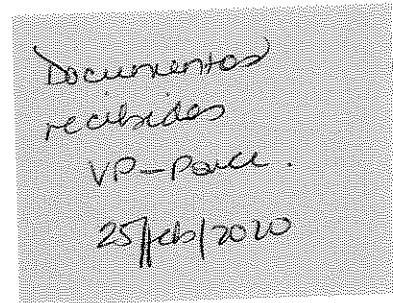 Documentos
recibidos
VP-Ponce.
25/feb/2020